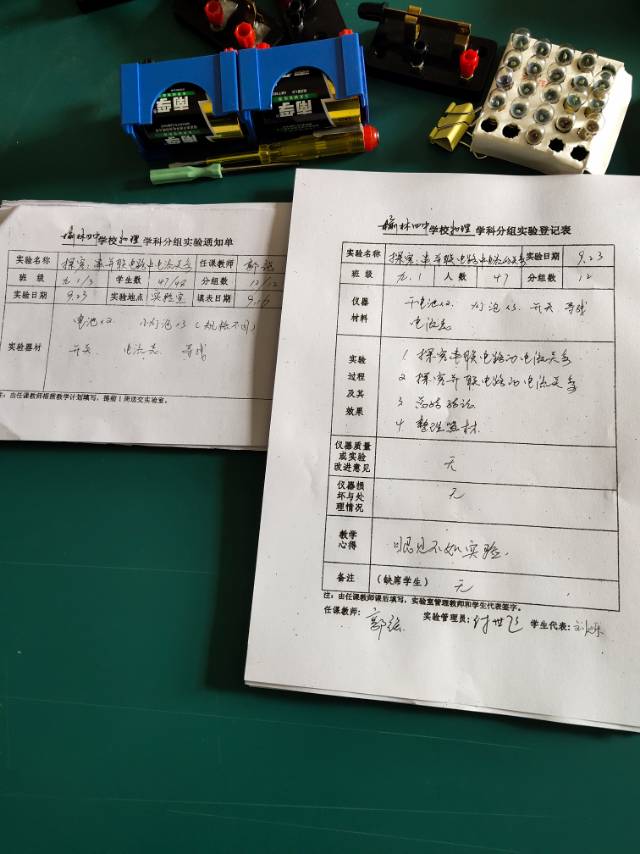 南孚
南孚
榆林四中学校物理学科分组实验通知单
实验名称 探究串并联电路中电流关系 任课教师
班级 九.1/3 学生数 47/48 分组数 12/12
实验日期 9.23 实验地点 实验室 填表日期 9.16
实验器材
电池x2 小灯泡x3(规格不同)
开关 电流表 导线
注:由任课教师根据教学计划填写,提前1周送交实验室。
榆林四中学校物理学科分组实验登记表
实验名称 探究串并联电路中电流关系 实验日期 9.23
班级 九.1 人数 47 分组数 12
仪器材料
干电池x2 灯泡x3 开关 导线
电流表
实验过程及其效果
1 探究串联电路的电流关系
2 探究并联电路的电流关系
3 总结结论
4 整理器材
仪器质量或实验改进意见 无
仪器损坏与处理情况 无
教学心得 眼见不如实验.
备注 (缺席学生) 无
注:由任课教师课后填写,实验室管理教师和学生代表签字。
任课教师: 实验管理员: 学生代表: